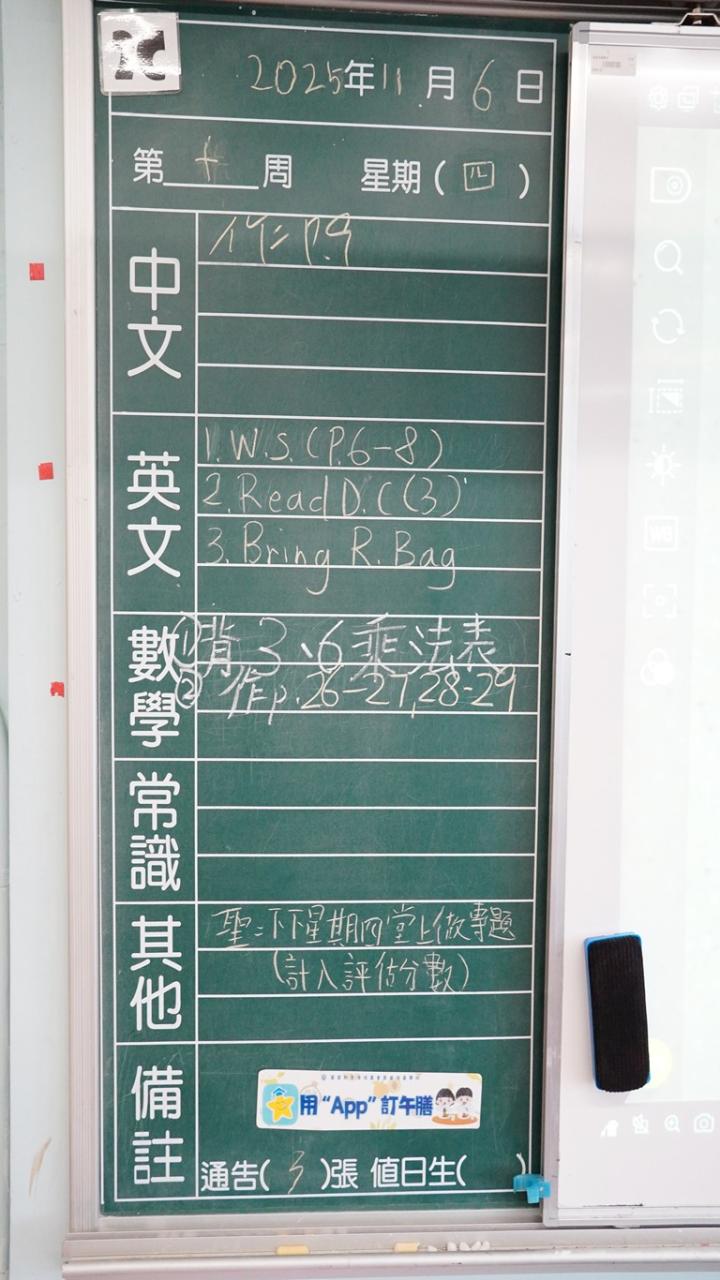 2025年11月6日
第十周 星期(四)
中文
作二 P.9
英文
1. W.S. (P.6-8)
2. Read D.C (3)
3. Bring R. Bag
數學
①背3、6乘法表
②作p.26-27,28-29
常識
其他
聖:下下星期四堂上做專題
(計入評估分數)
備註
用“App”訂午膳
通告( 3 )張 值日生( )
WB